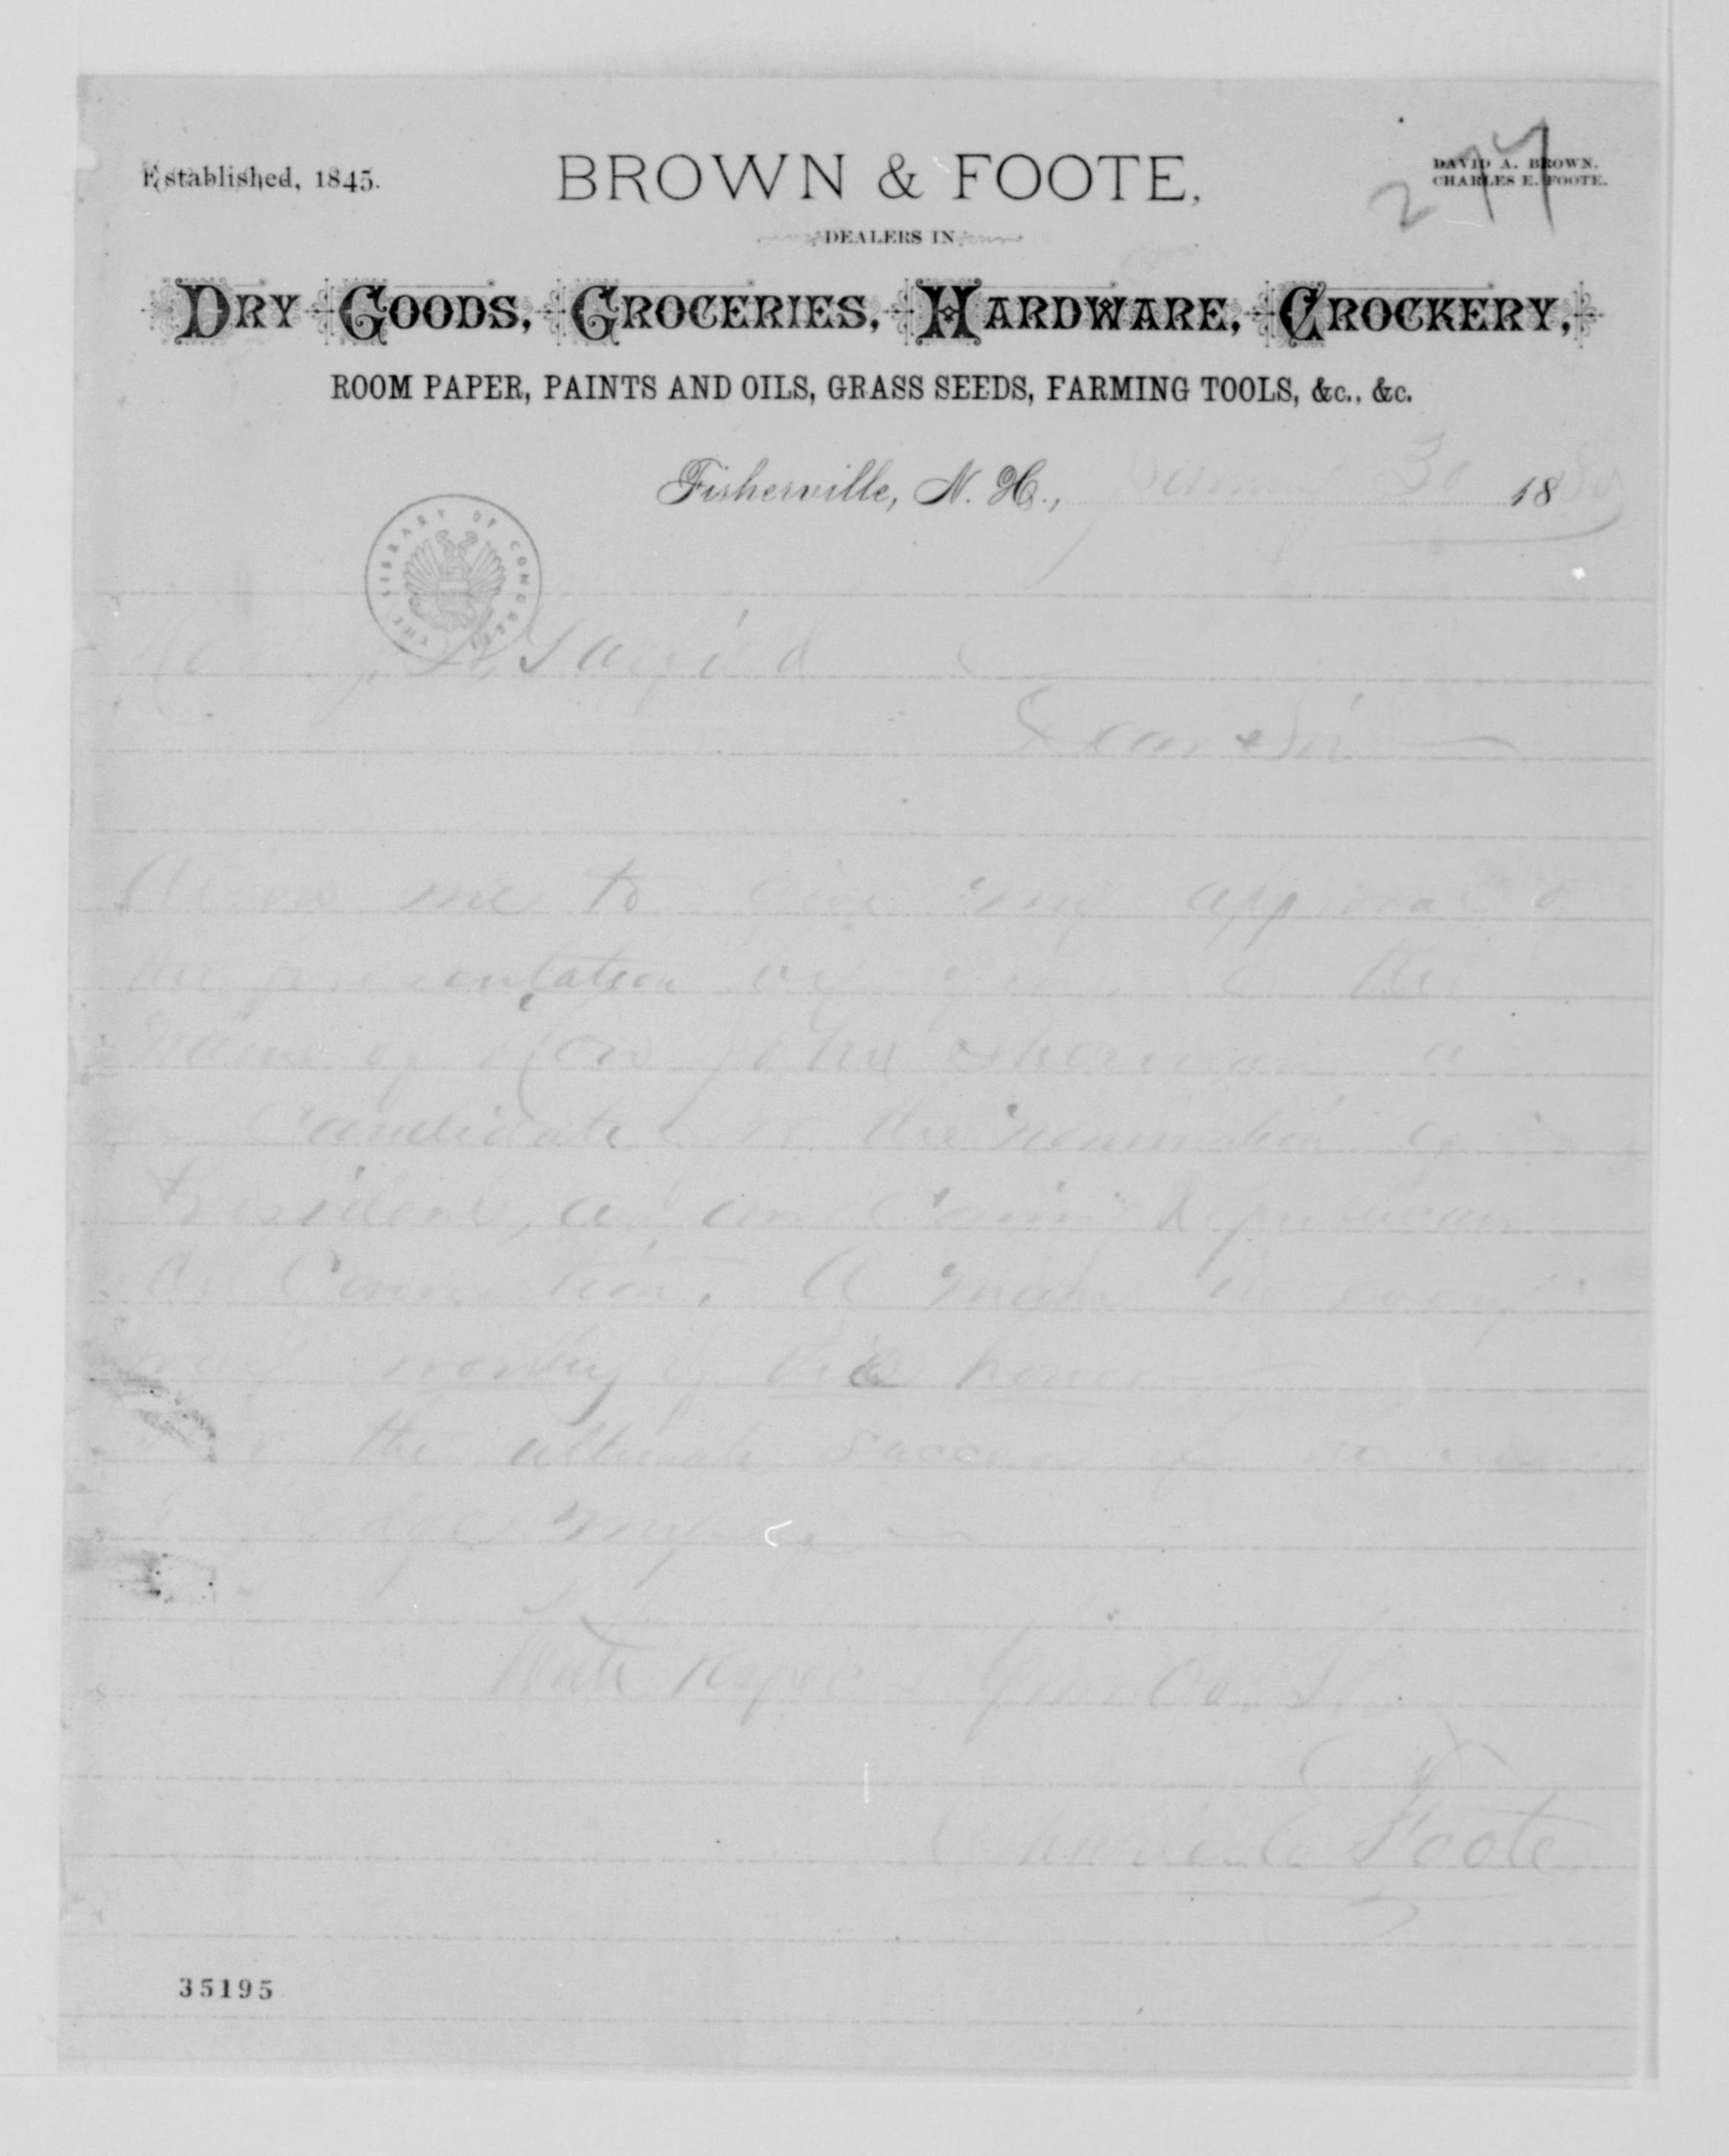 277
Established, 1845.
BROWN & FOOTE,
DAVID A. BROWN.
CHARLES E. FOOTE.
DEALERS IN
DRY GOODS, GROCERIES, HARDWARE, CROCKERY,
ROOM PAPER, PAINTS AND OILS, GRASS SEEDS, FARMING TOOLS, &c., &c.
Fisherville, N. H., 30 1880
THE LIBRARY OF CONGRESS
Hon J. A. Garfield
Dear Sir
Allow me to give my approval of
the presentation by you of the
name of Hon John Sherman a
candidate for the nomination of
President, at
Convention. A man in every
way worthy of the honor
the ultimate success of
myself
With respect Your Ob. St.
Charles E. Foote
35195